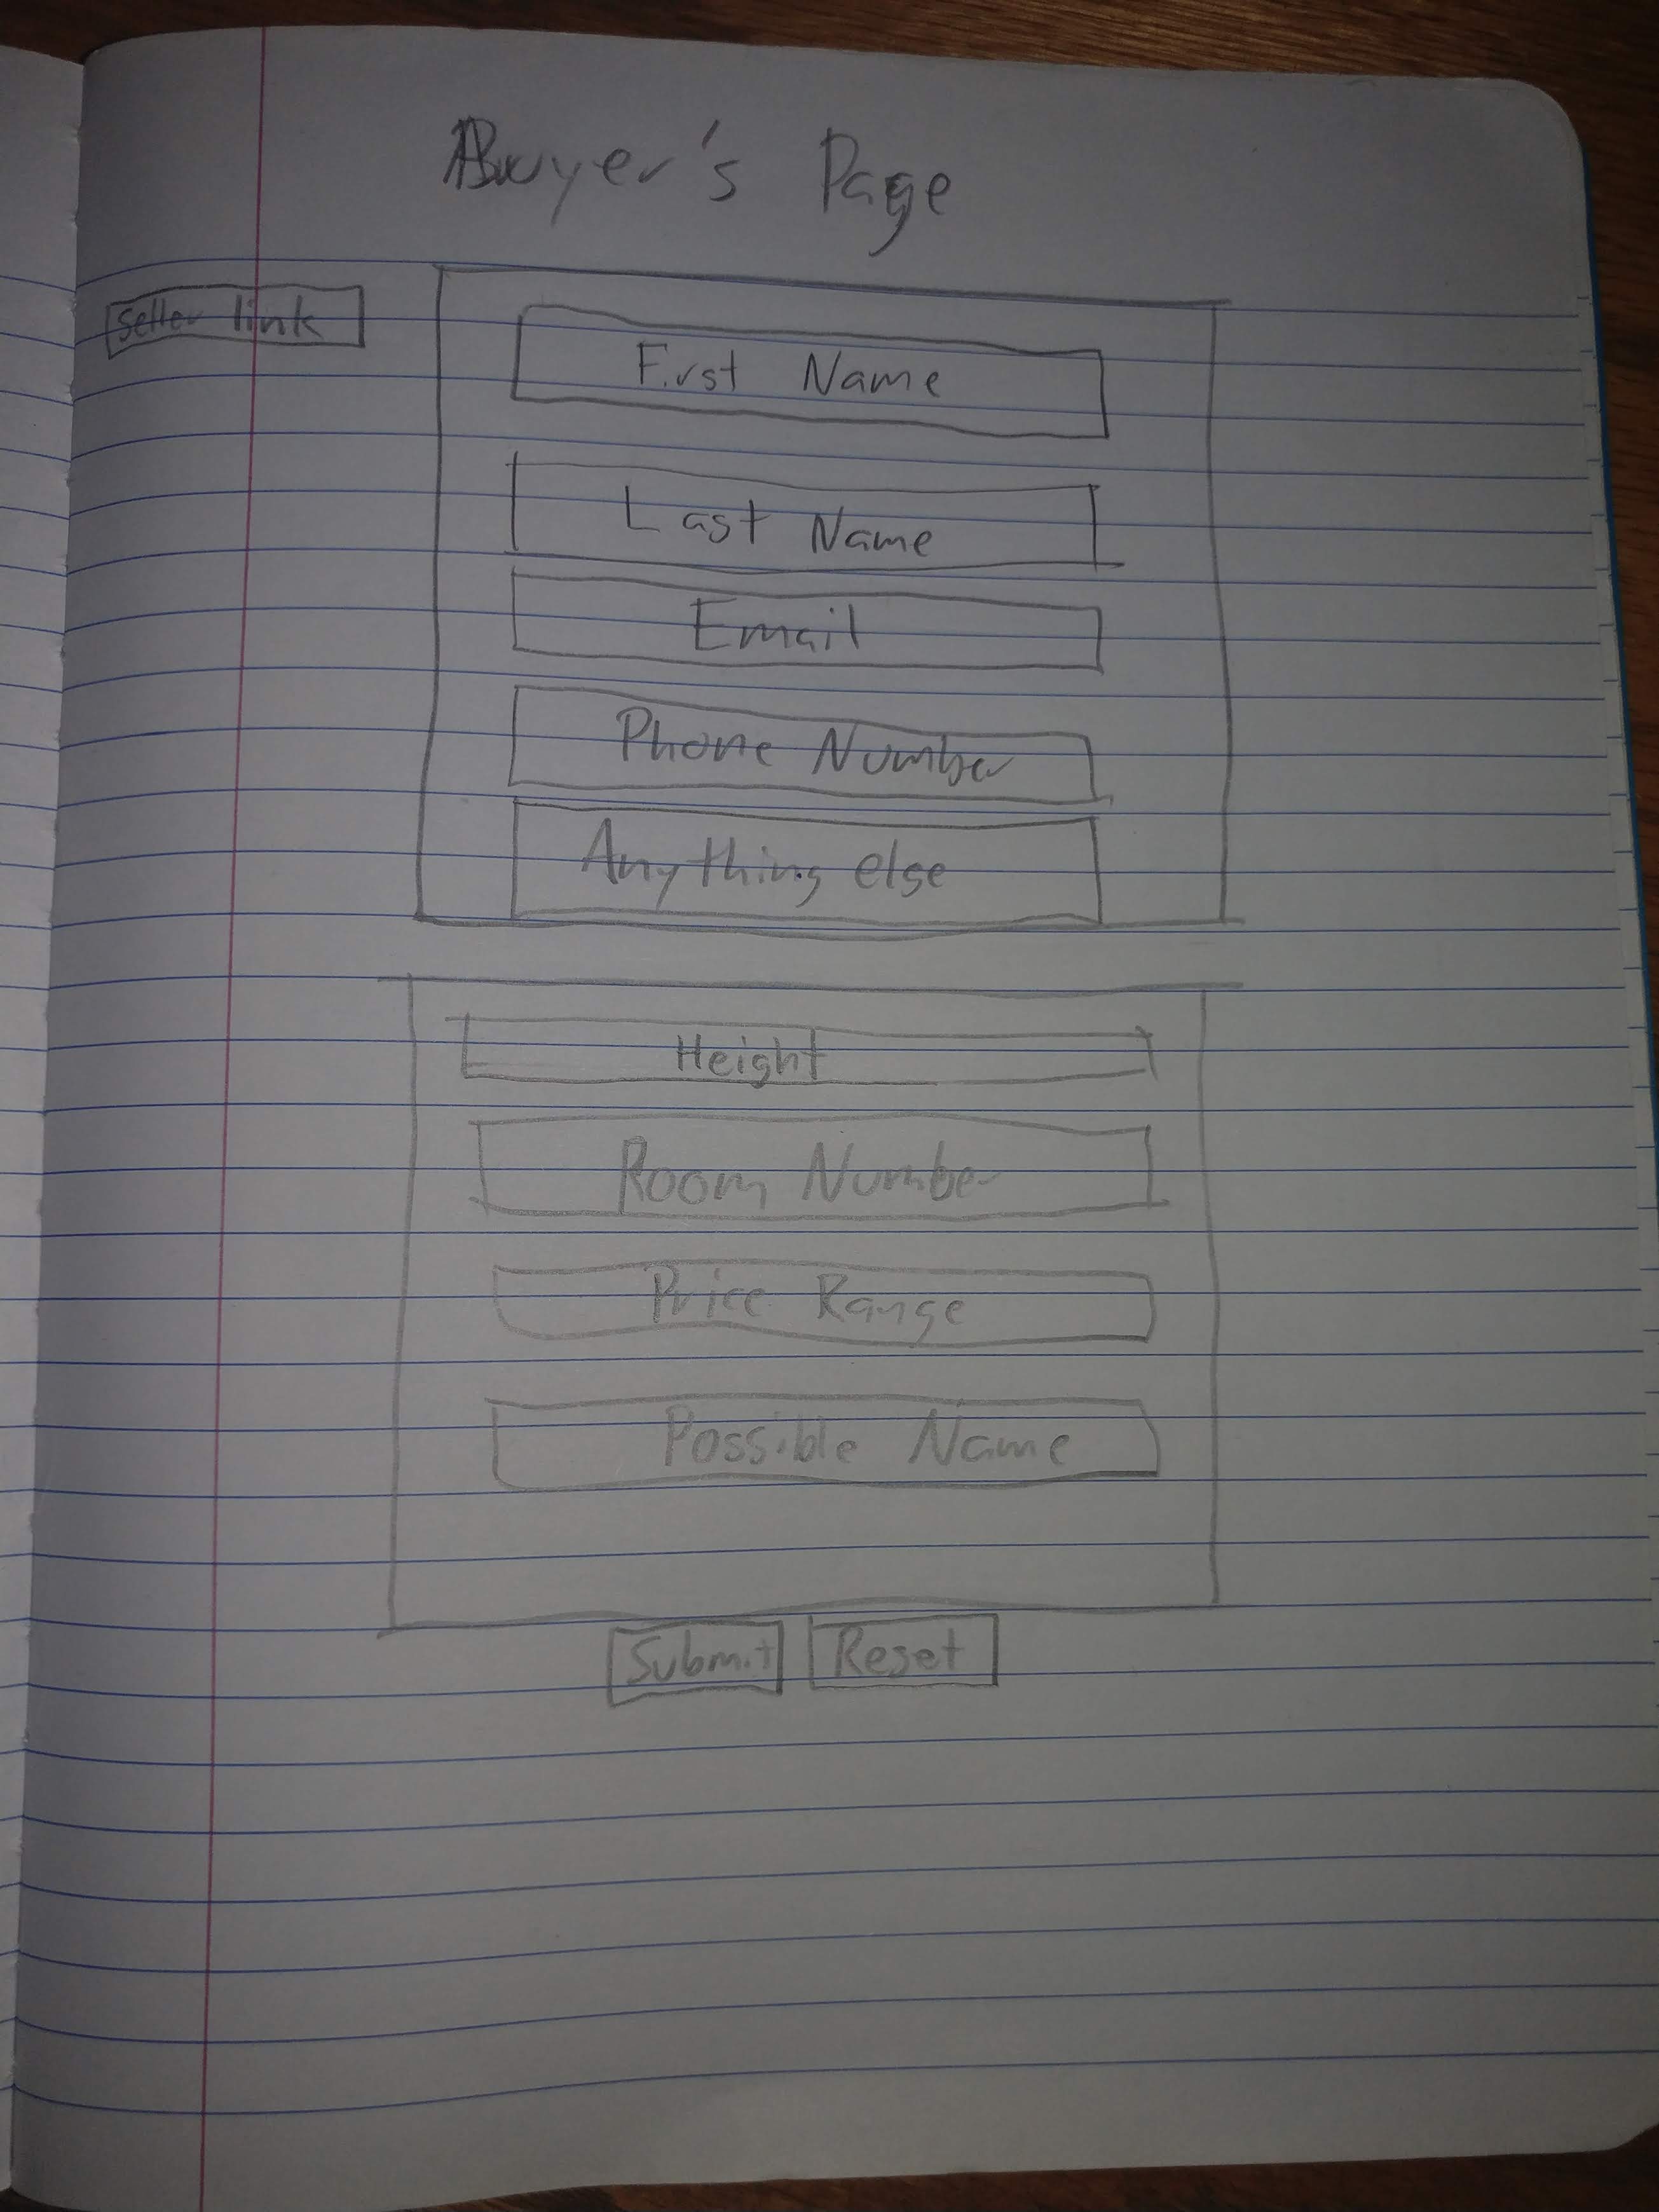 Buyer's Page
Seller link
First Name
Last Name
Email
Phone Number
Anything else
Height
Room Number
Price Range
Possible Name
Submit Reset